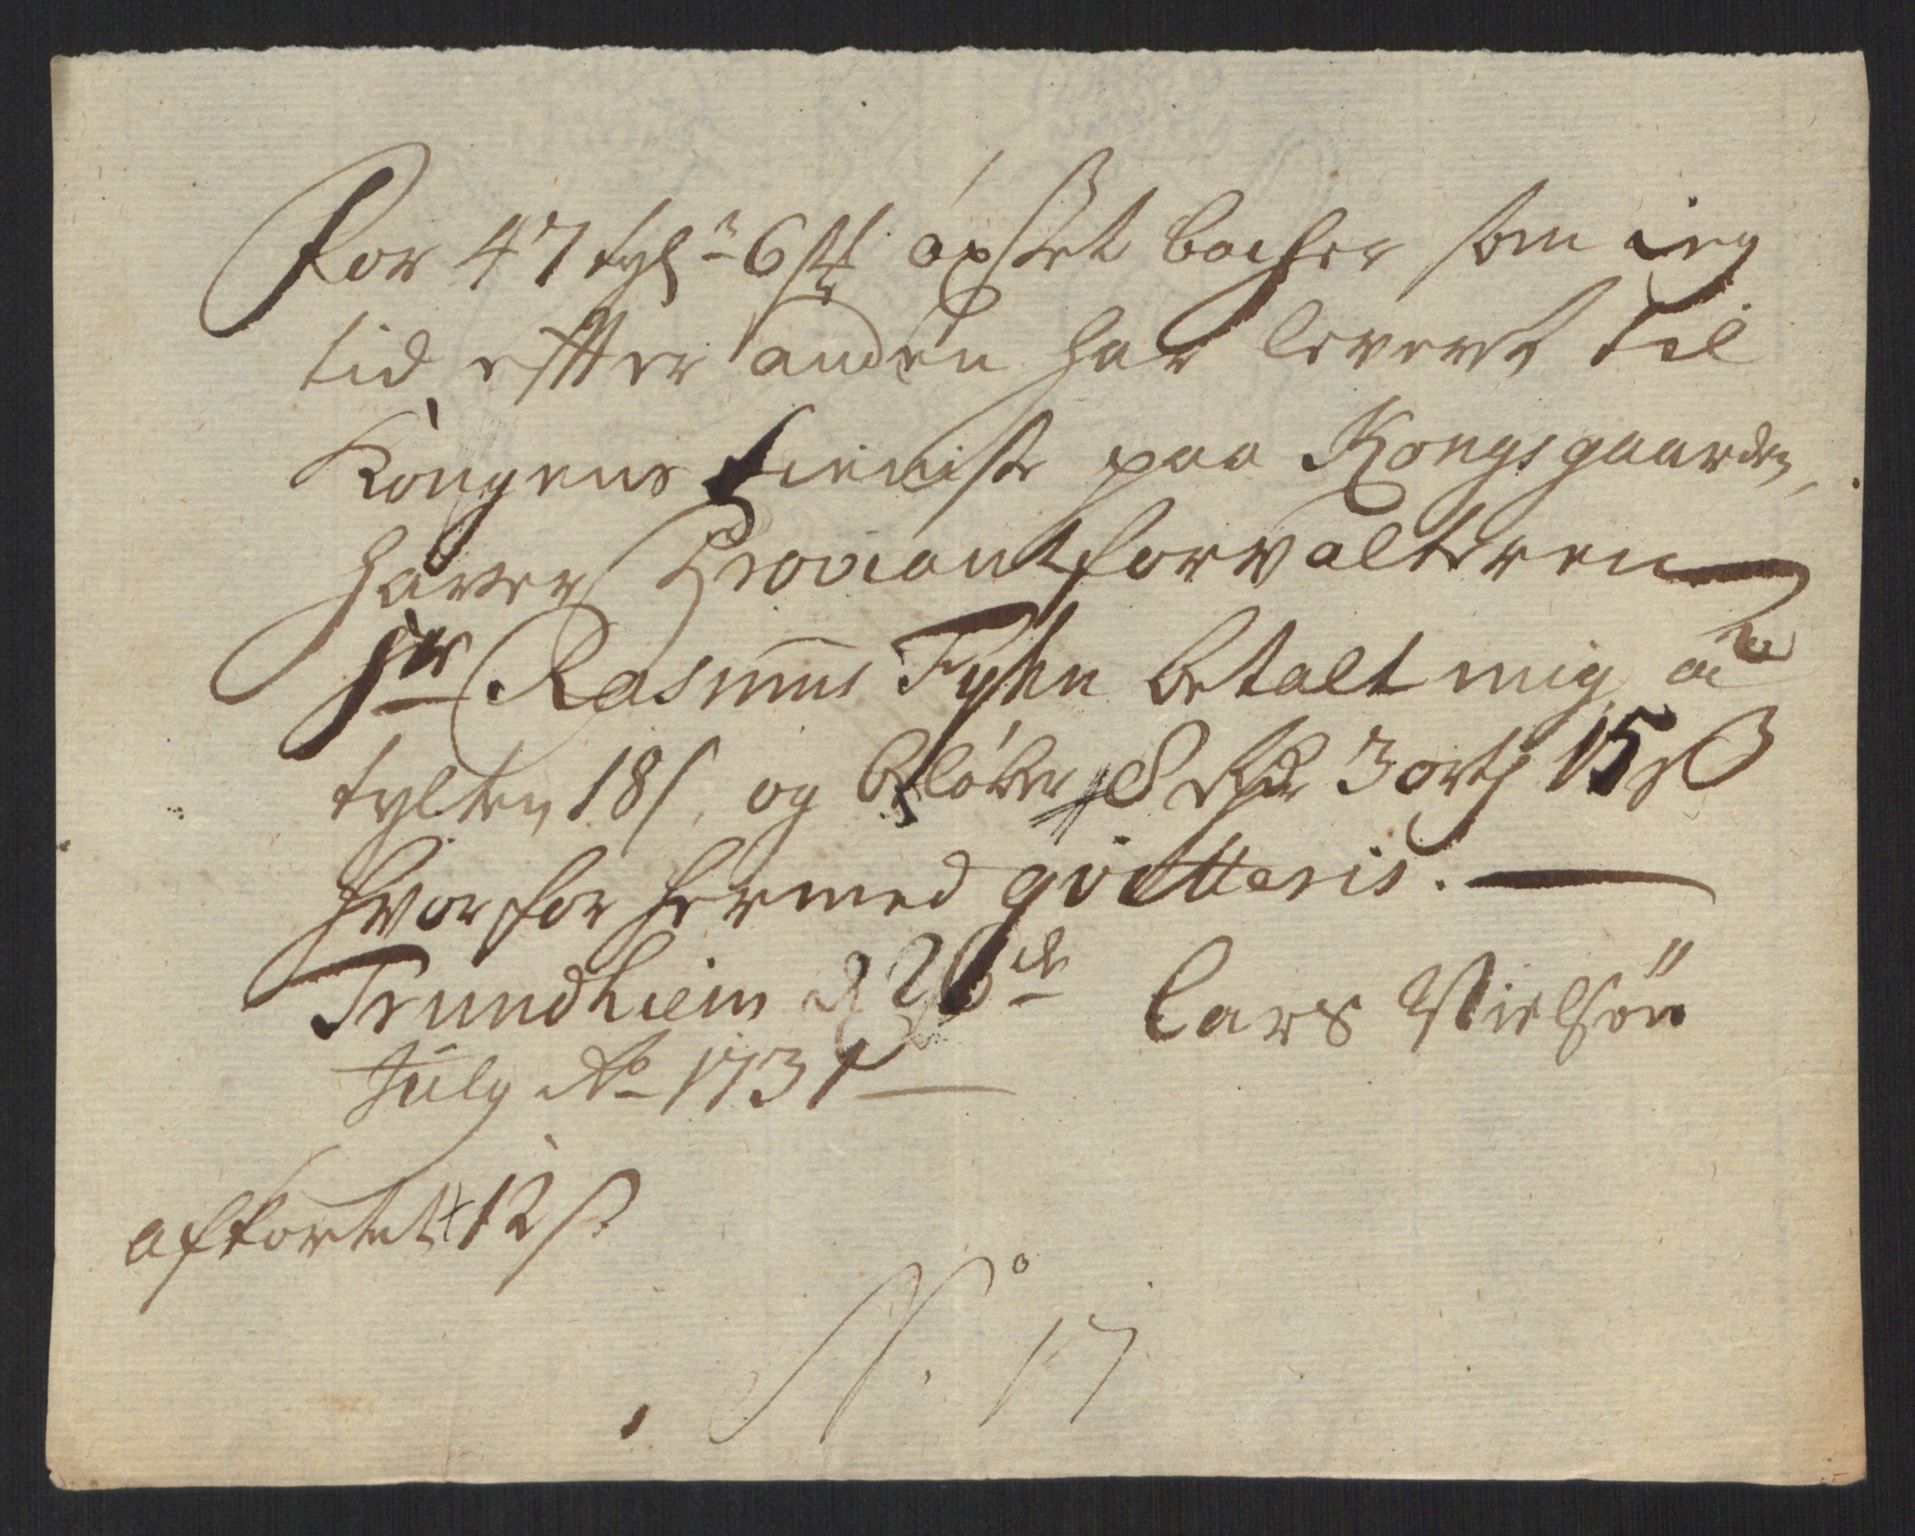 For 47 tylt 6 st: opsset bacher som ieg
tid effter anden har levert til
Kongens tieniste paa Kongsgaarden,
haver Proviantforvalteren
Hr Rasmus Fyhn betalt mig, a
tylten 18 s, og beløber 8 Rdr 3 ort 15 s
hvorfor hermed qvitteris.
Trundhiem d 26de Lars Nielsøn
July Ao 1731
afkortet 12 s
No. 17